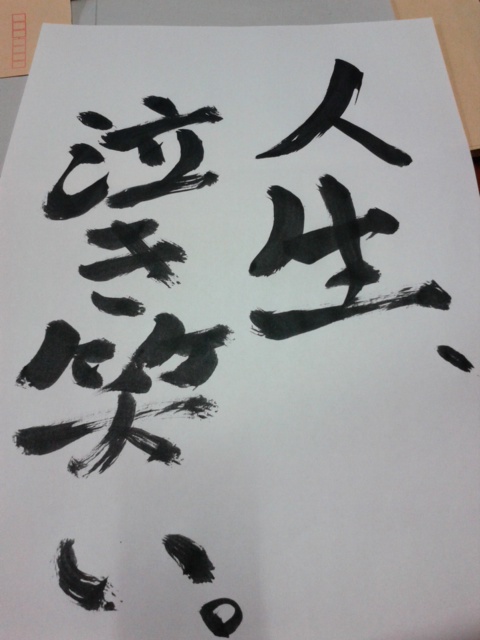 人生、
泣き笑い。